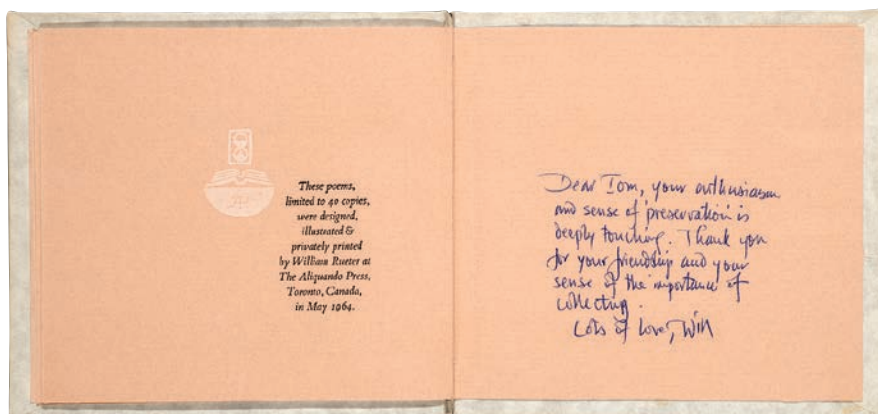 These poems,
limited to 40 copies,
were designed,
illustrated &
privately printed
by William Rueter at
The Aliquando Press,
Toronto, Canada,
in May 1964.
Dear Tom, your enthusiasm
and sense of preservation is
deeply touching. Thank you
for your friendship and your
sense of the importance of
collecting.
Lots of love, Will